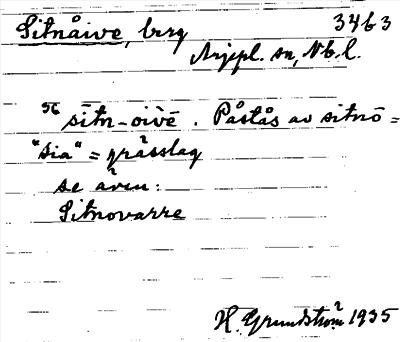 Sitnåive, berg 34b3
Arjepl. sn, Nb. l.
56 sītn-oivē. Påstås av sitnō =
"sia" = grässlag
se även:
Sitnovarre
H. Grundström 1935